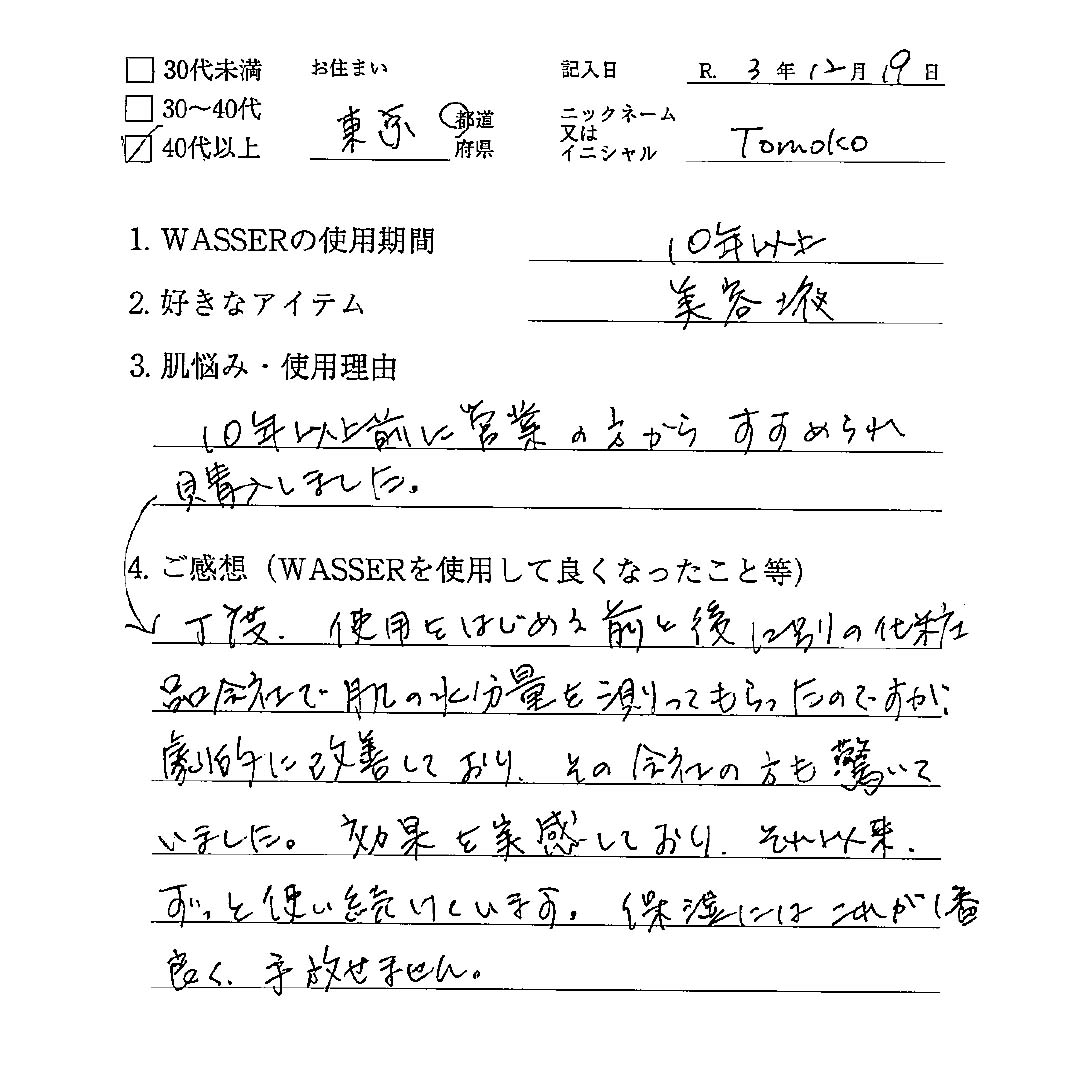 □ 30代未満 お住まい 記入日 R. 3年12月19日
□ 30〜40代 東京 都道府県 ニックネーム又はイニシャル Tomoko
☑ 40代以上
1. WASSERの使用期間 10年以上
2. 好きなアイテム 美容液
3. 肌悩み・使用理由
10年以上前に営業の方からすすめられ
購入しました。
4. ご感想（WASSERを使用して良くなったこと等）
丁度、使用をはじめる前と後に別の化粧
品会社で肌の水分量を測ってもらったのですが、
劇的に改善しており、その会社の方も驚いて
いました。効果を実感しており、それ以来、
ずっと使い続けています。保湿にはこれが1番
良く、手放せません。